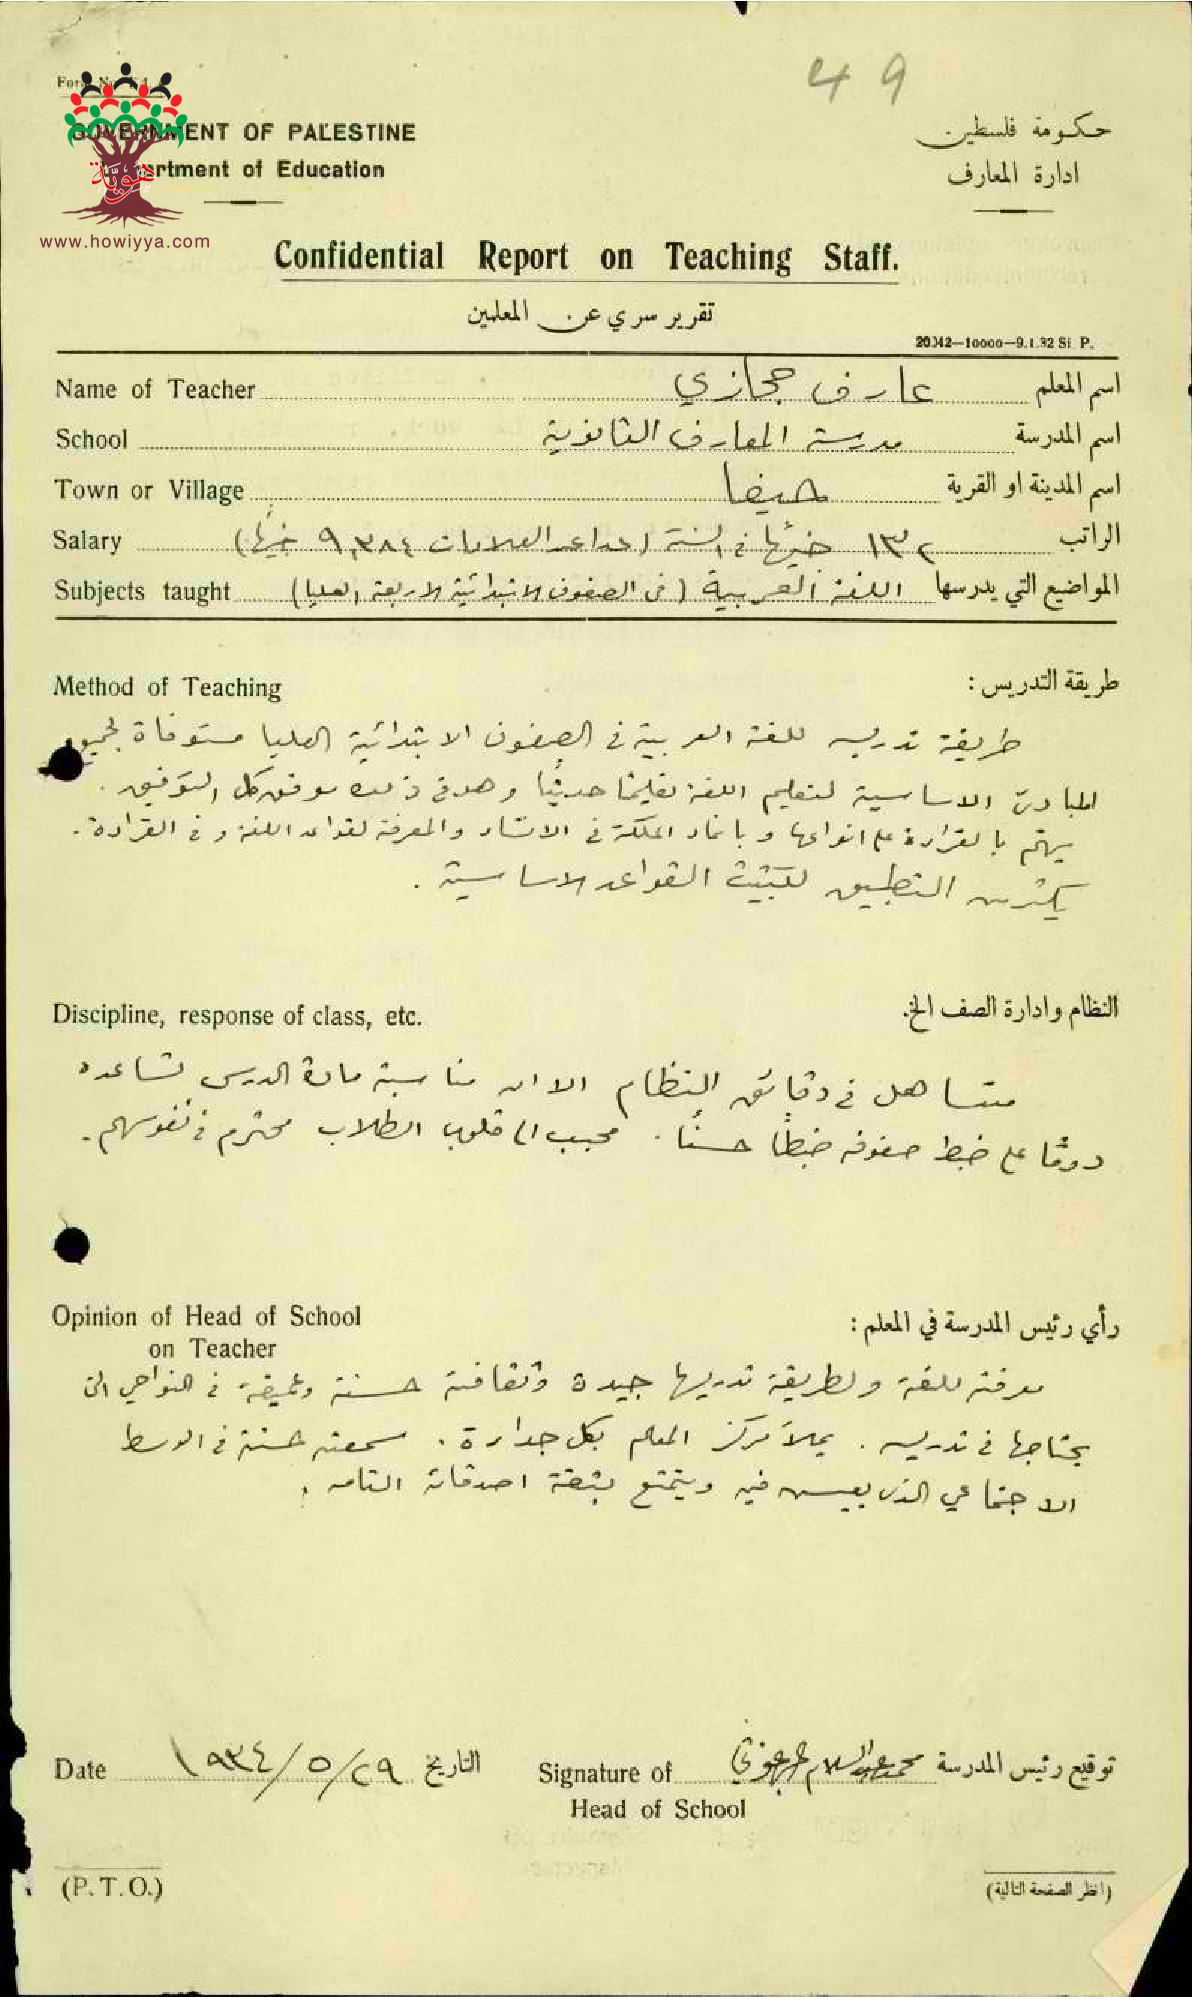 49
Form No. Ed.
GOVERNMENT OF PALESTINE
حكومة فلسطين
Department of Education
ادارة المعارف
هوية
www.howiyya.com
Confidential Report on Teaching Staff.
تقرير سري عن المعلمين
20042—10000—9.1.32 Si. P.
Name of Teacher عارف حجازي اسم المعلم
School مدرسة المعارف الثانوية اسم المدرسة
Town or Village حيفا اسم المدينة او القرية
Salary ١٣٢ جنيهًا في السنة (عدا عن العلاوات ٩,٣٨٤ جنيهًا) الراتب
Subjects taught اللغة العربية (في الصفوف الابتدائية الاربعة العليا) المواضيع التي يدرسها
Method of Teaching طريقة التدريس :
طريقة تدريسه للغة العربية في الصفوف الابتدائية العليا مستوفاة لجميع
المبادئ الاساسية لتعليم اللغة تعليمًا حديثًا وهو في ذلك موفق كل التوفيق .
يهتم بالقراءة على انواعها وبانماء الملكة في الانشاء والمعرفة لقواعد اللغة وفي القراءة .
يكثر من التطبيق لتثبيت القواعد الاساسية .
Discipline, response of class, etc. النظام وادارة الصف الخ.
متساهل في دقائق النظام الا ان مناسبة مادة الدرس تساعده
دومًا على ضبط صفوفه ضبطًا حسنًا . محبب الى قلوب الطلاب محترم في نفوسهم .
Opinion of Head of School
on Teacher
رأي رئيس المدرسة في المعلم :
معرفته للغة ولطريقة تدريسها جيدة وثقافته حسنة وعميقة في النواحي التي
يحتاجها في تدريسه . يملأ مركز المعلم بكل جدارة . سمعته حسنة في الوسط
الاجتماعي الذي يعيش فيه ويتمتع بثقة اصدقائه التامة .
Date ١٩٣٤/٥/٢٩ التاريخ
Signature of محمد عبد السلام البرغوثي توقيع رئيس المدرسة
Head of School
(P.T.O.)
(انظر الصفحة التالية)